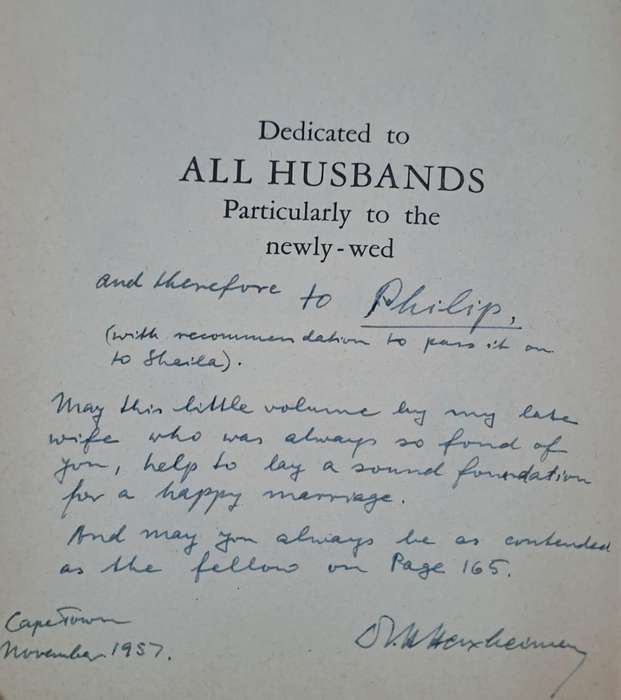 Dedicated to
ALL HUSBANDS
Particularly to the
newly-wed
and therefore to Philip,
(with recommendation to pass it on
to Sheila).
May this little volume by my late
wife who was always so fond of
you, help to lay a sound foundation
for a happy marriage.
And may you always be as contended
as the fellow on Page 165.
Cape Town
November 1957.
Herxheimer